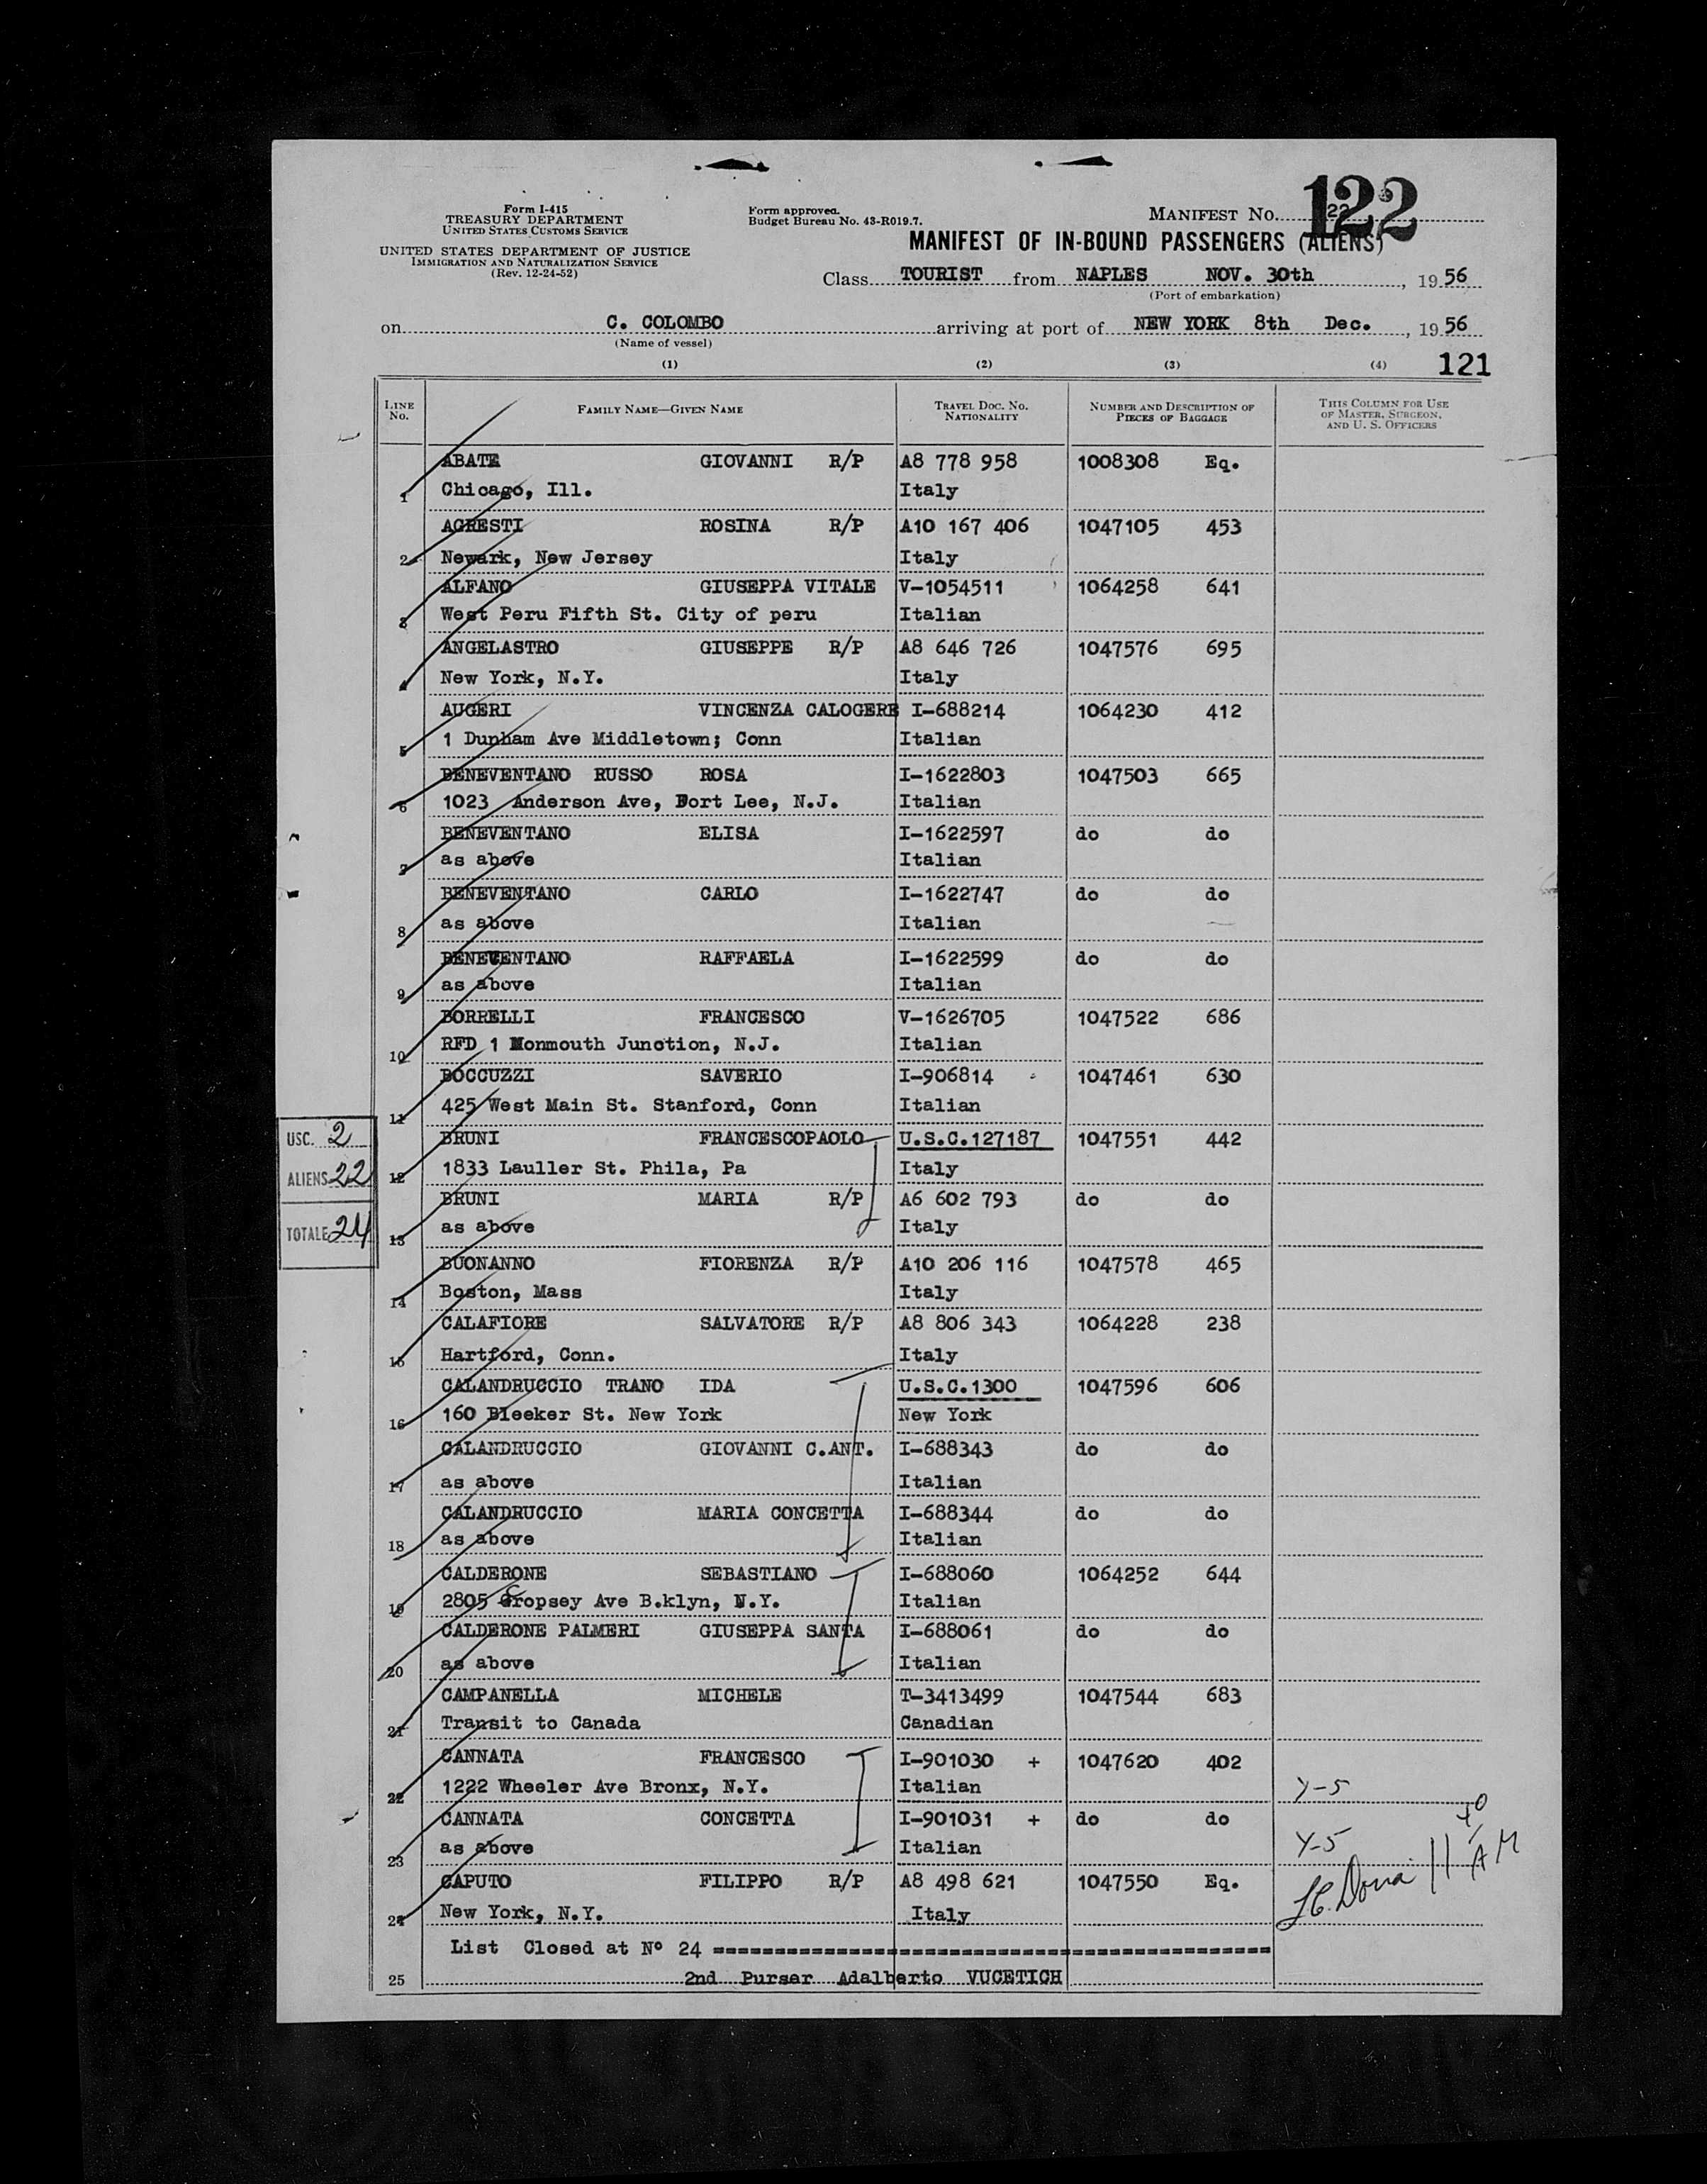 Form I-415
TREASURY DEPARTMENT
UNITED STATES CUSTOMS SERVICE
UNITED STATES DEPARTMENT OF JUSTICE
IMMIGRATION AND NATURALIZATION SERVICE
(Rev. 12-24-52)
Form approved.
Budget Bureau No. 43-R019.7.
MANIFEST NO. 122
122
MANIFEST OF IN-BOUND PASSENGERS (ALIENS)
Class TOURIST from NAPLES NOV. 30th, 19 56
(Port of embarkation)
on C. COLOMBO arriving at port of NEW YORK 8th Dec., 19 56
(Name of vessel)
(1) (2) (3) (4) 121
LINE No. FAMILY NAME—GIVEN NAME TRAVEL DOC. NO. NATIONALITY NUMBER AND DESCRIPTION OF PIECES OF BAGGAGE THIS COLUMN FOR USE OF MASTER, SURGEON, AND U. S. OFFICERS
ABATE GIOVANNI R/P A8 778 958 1008308 Eq.
1 Chicago, Ill. Italy
AGRESTI ROSINA R/P A10 167 406 1047105 453
2 Newark, New Jersey Italy
ALFANO GIUSEPPA VITALE V-1054511 1064258 641
3 West Peru Fifth St. City of peru Italian
ANGELASTRO GIUSEPPE R/P A8 646 726 1047576 695
4 New York, N.Y. Italy
AUGERI VINCENZA CALOGERE I-688214 1064230 412
5 1 Dunham Ave Middletown; Conn Italian
BENEVENTANO RUSSO ROSA I-1622803 1047503 665
6 1023 Anderson Ave, Fort Lee, N.J. Italian
BENEVENTANO ELISA I-1622597 do do
7 as above Italian
BENEVENTANO CARLO I-1622747 do do
8 as above Italian
BENEVENTANO RAFFAELA I-1622599 do do
9 as above Italian
BORRELLI FRANCESCO V-1626705 1047522 686
10 RFD 1 Monmouth Junction, N.J. Italian
BOCCUZZI SAVERIO I-906814 1047461 630
11 425 West Main St. Stanford, Conn Italian
BRUNI FRANCESCOPAOLO U.S.C.127187 1047551 442
12 1833 Lauller St. Phila, Pa Italy
BRUNI MARIA R/P A6 602 793 do do
13 as above Italy
USC. 2
ALIENS 22
TOTALE 24
BUONANNO FIORENZA R/P A10 206 116 1047578 465
14 Boston, Mass Italy
CALAFIORE SALVATORE R/P A8 806 343 1064228 238
15 Hartford, Conn. Italy
CALANDRUCCIO TRANO IDA U.S.C.1300 1047596 606
16 160 Bleeker St. New York New York
CALANDRUCCIO GIOVANNI C.ANT. I-688343 do do
17 as above Italian
CALANDRUCCIO MARIA CONCETTA I-688344 do do
18 as above Italian
CALDERONE SEBASTIANO I-688060 1064252 644
19 2805 Cropsey Ave B.klyn, N.Y. Italian
CALDERONE PALMERI GIUSEPPA SANTA I-688061 do do
20 as above Italian
CAMPANELLA MICHELE T-3413499 1047544 683
21 Transit to Canada Canadian
CANNATA FRANCESCO I-901030 + 1047620 402
22 1222 Wheeler Ave Bronx, N.Y. Italian Y-5
CANNATA CONCETTA I-901031 + do do
23 as above Italian Y-5
CAPUTO FILIPPO R/P A8 498 621 1047550 Eq.
24 New York, N.Y. Italy
List Closed at Nº 24 ================
25 2nd Purser Adalberto VUCETICH